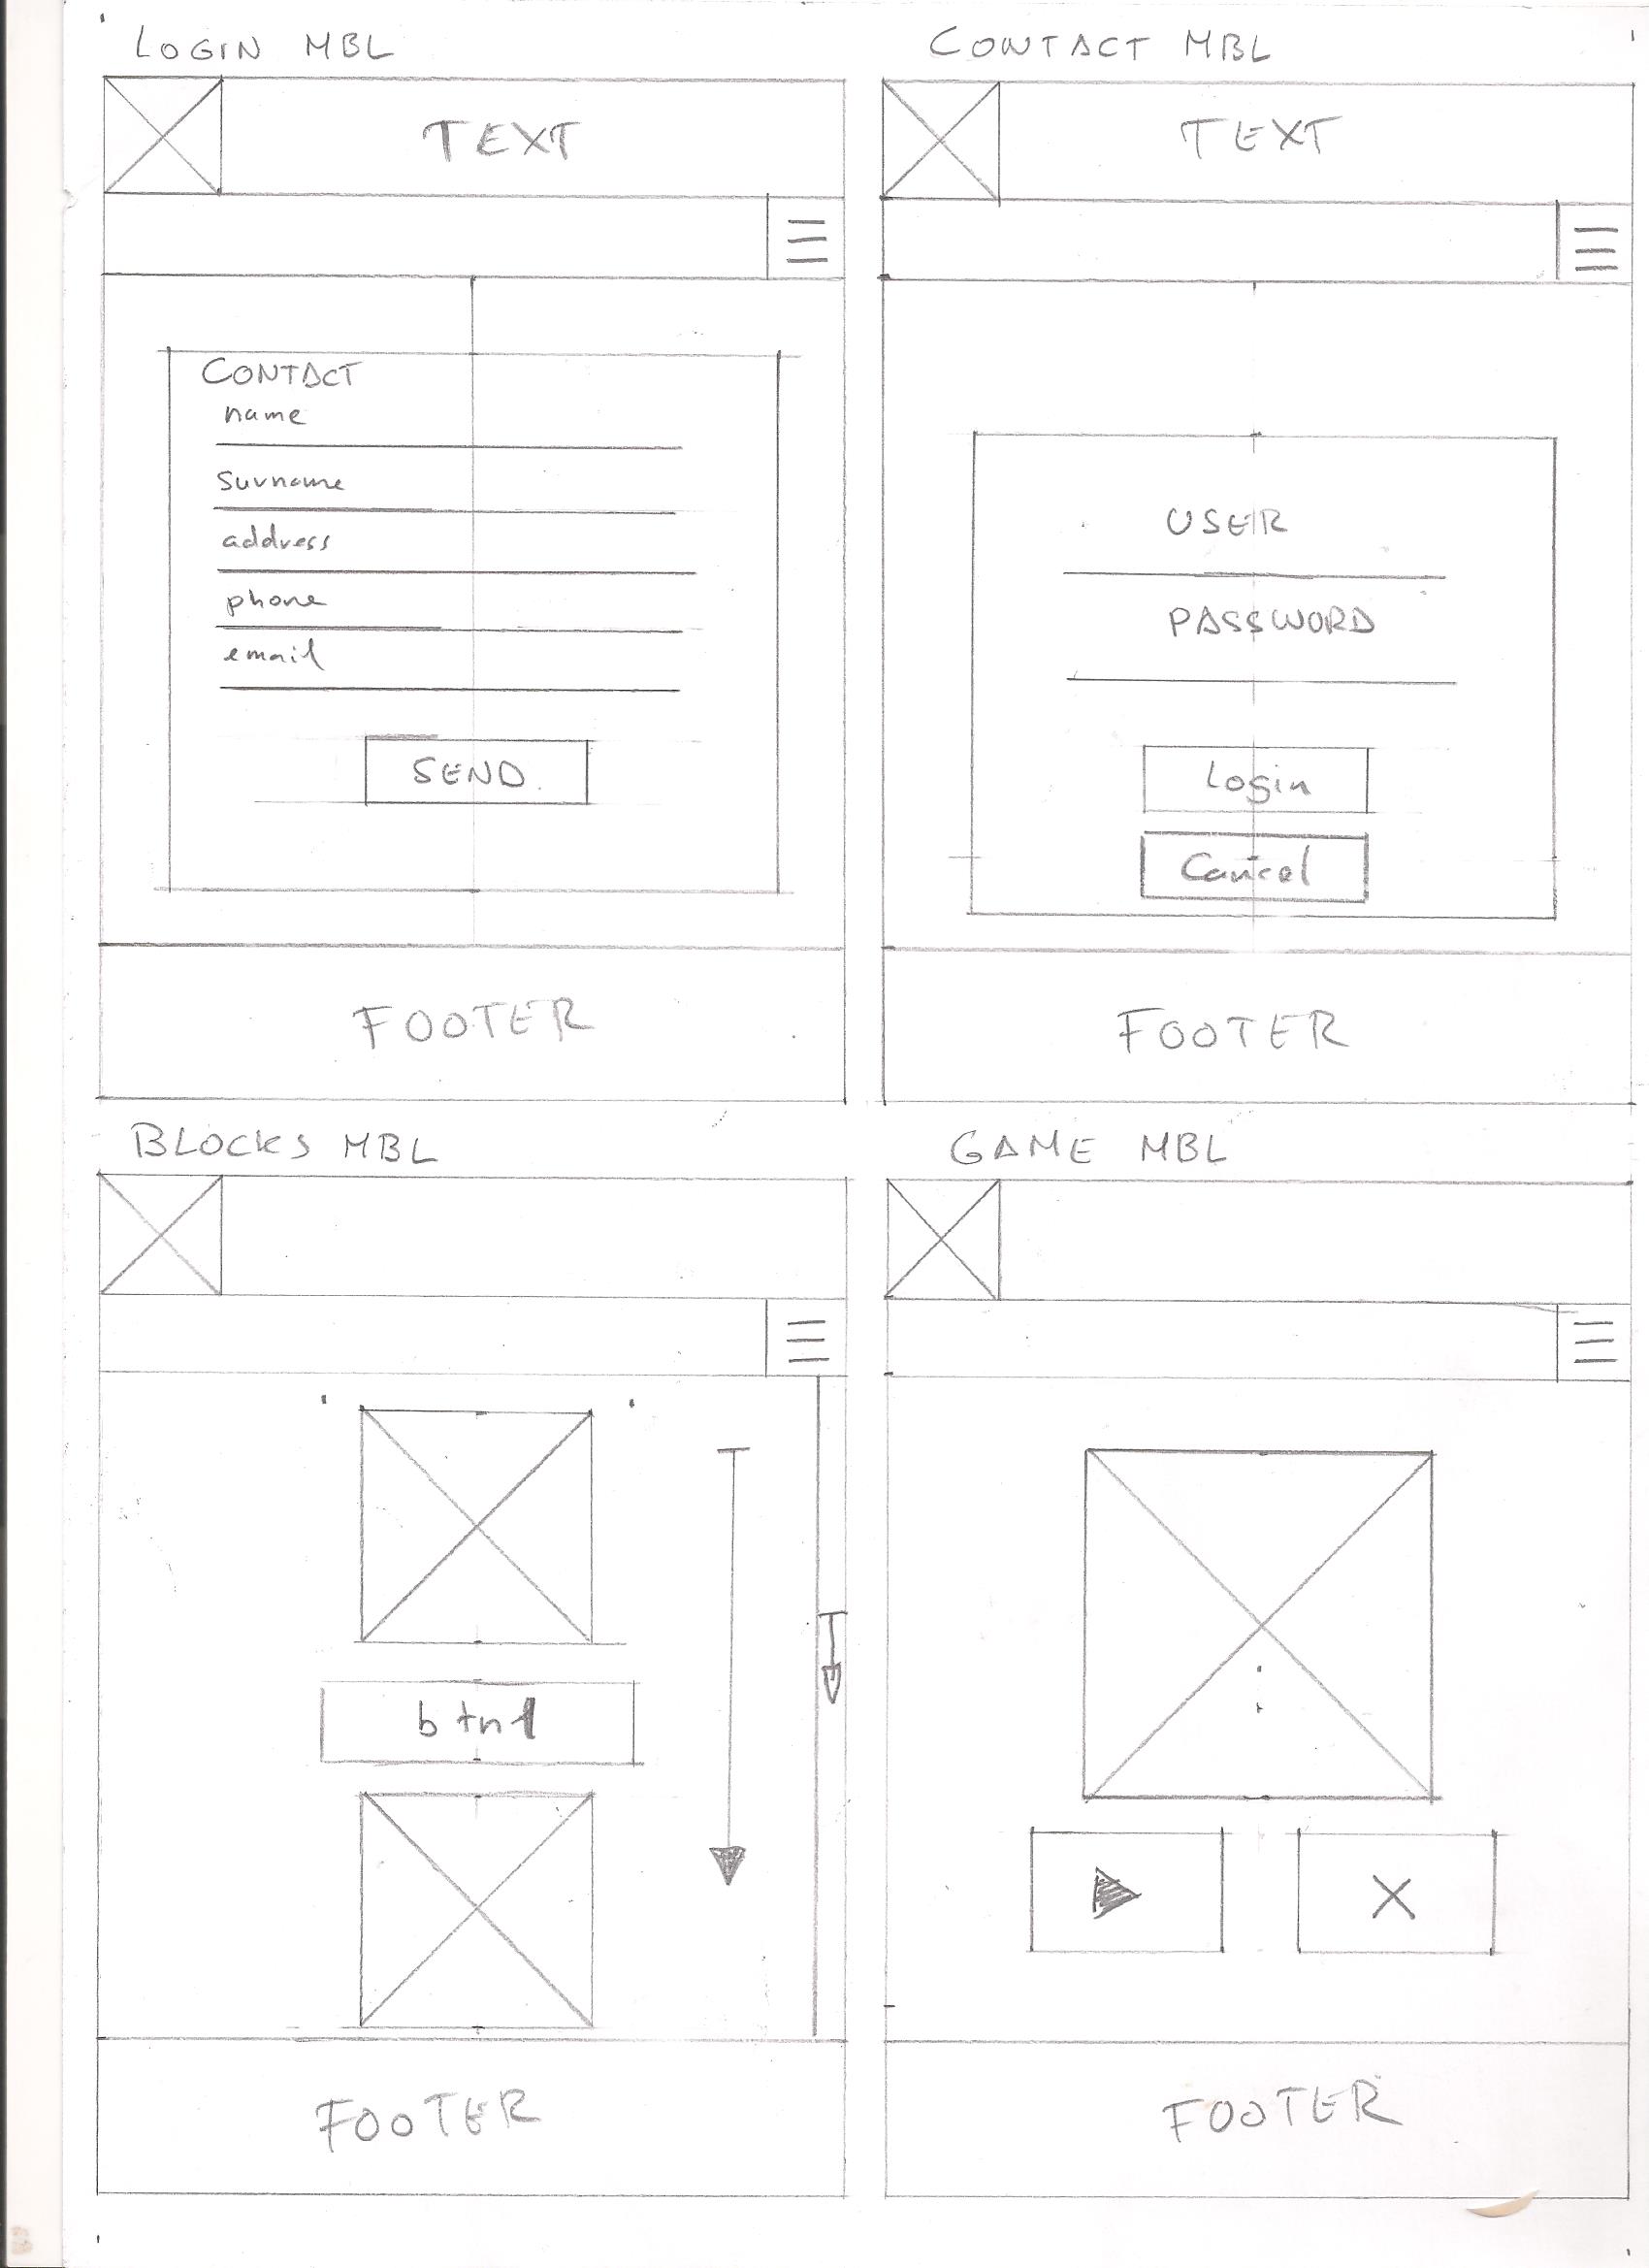 LOGIN MBL
TEXT
CONTACT
name
surname
address
phone
email
SEND
FOOTER
CONTACT MBL
TEXT
USER
PASSWORD
Login
Cancel
FOOTER
BLOCKS MBL
btn1
FOOTER
GAME MBL
FOOTER